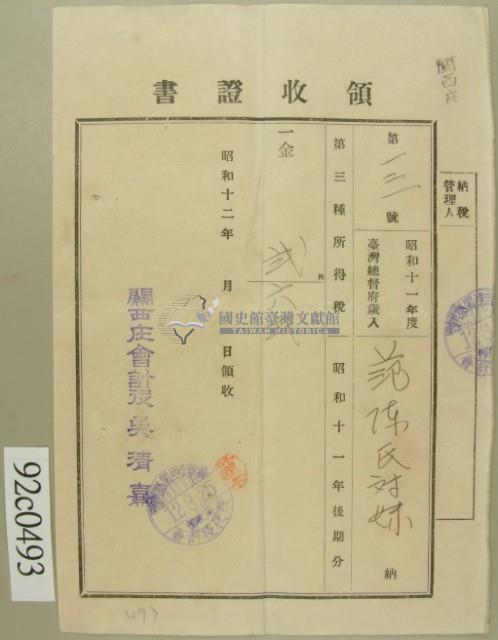 領收證書
關西庄
納稅管理人
第一三號
昭和十一年度
臺灣總督府歲入
范陳氏対妹
納
第三種所得稅
昭和十一年後期分
一金
円
弐六
昭和十二年 月 日領收
關西庄會計役 吳清
12.3.25
國史館臺灣文獻館
TAIWAN HISTORICA
92c0493
493